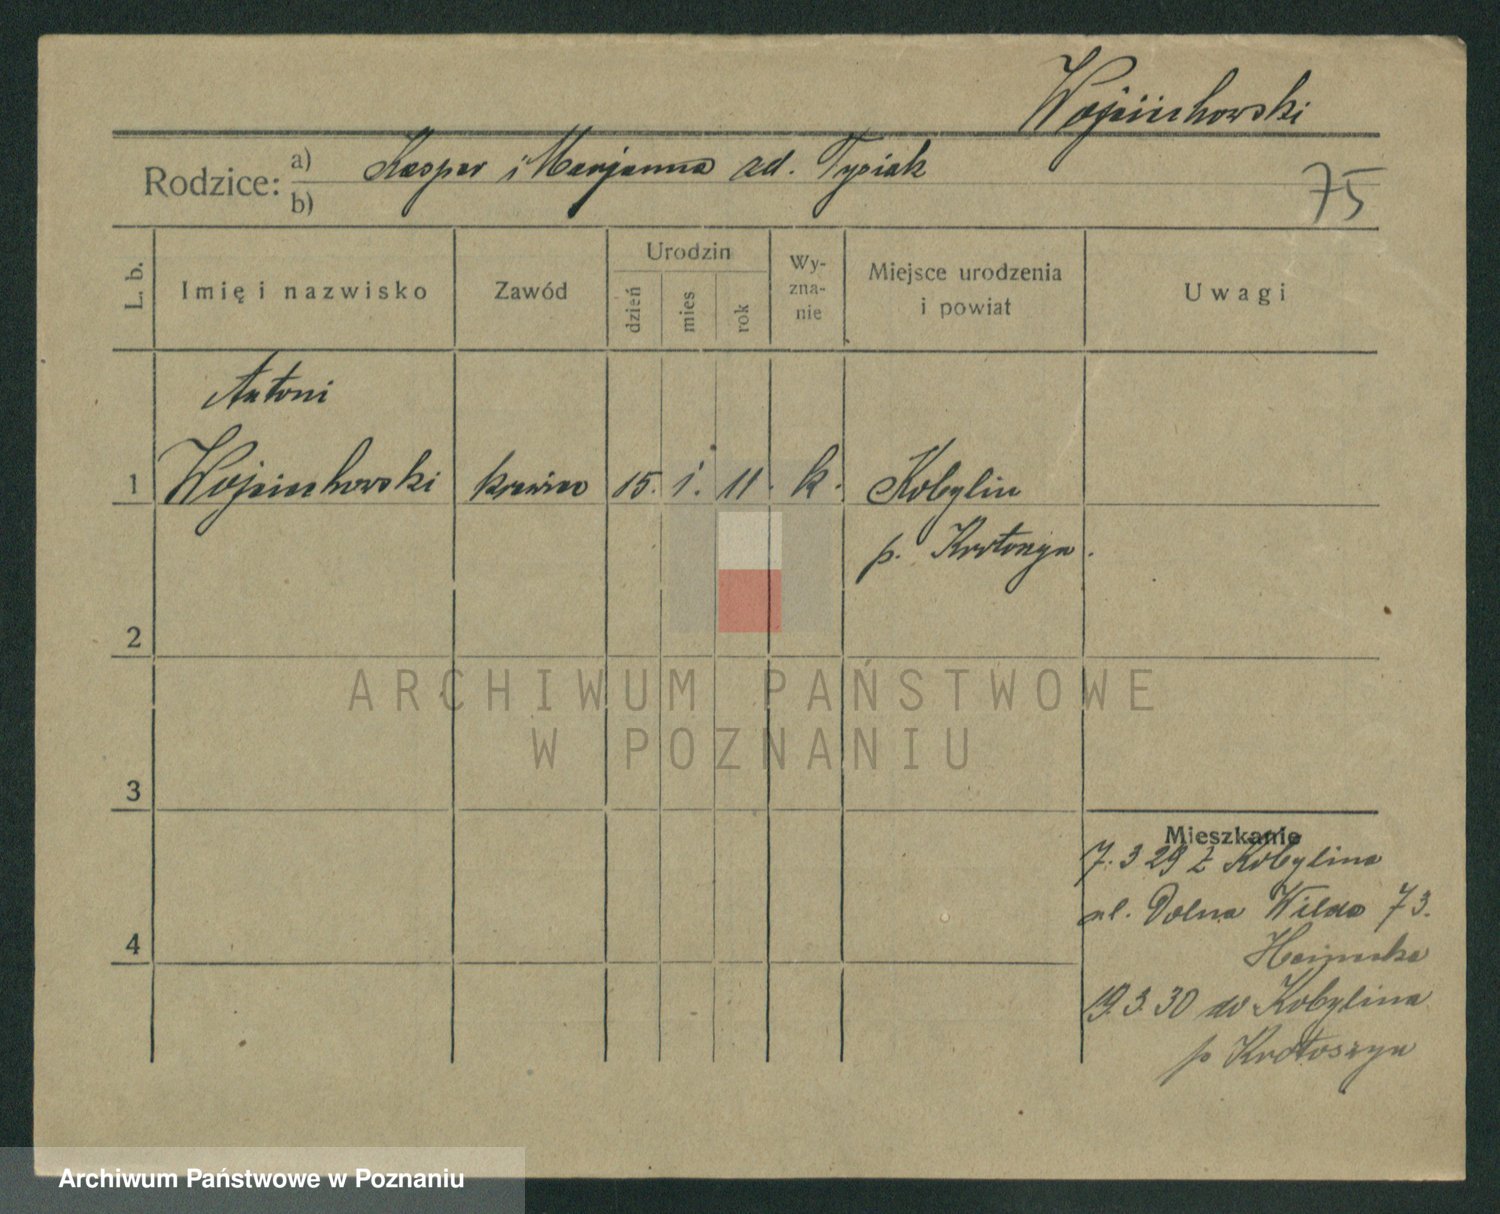 Wojciechowski
Rodzice: a) Kasper i Marjanna zd. Tysiak
b)
75
L. b. Imię i nazwisko Zawód Urodzin dzień mies rok Wy-zna-nie Miejsce urodzenia i powiat Uwagi
Antoni
1 Wojciechowski krawiec 15. 1. 11. k. Kobylin
p. Krotoszyn.
2
3
4
Mieszkanie
7.3 29 z Kobylina
ul. Dolna Wilda 73.
19.3.30 do Kobylina
p Krotoszyn
ARCHIWUM PAŃSTWOWE
W POZNANIU
Archiwum Państwowe w Poznaniu